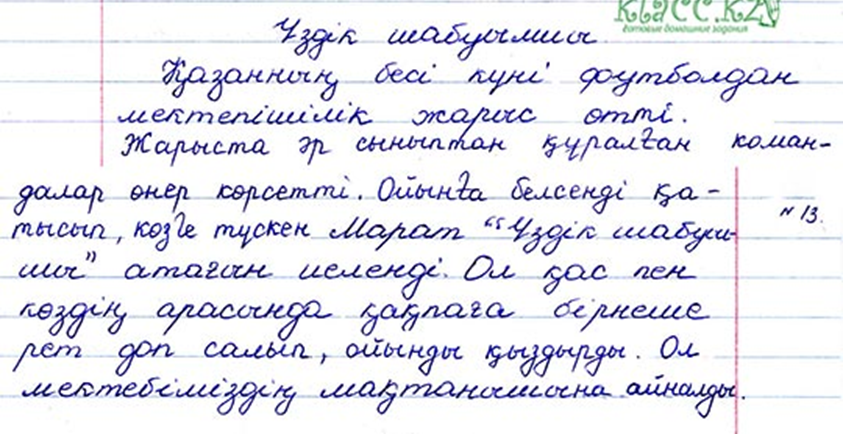 класс.kz
готовые домашние задания
Үздік шабуылшы
Қазанның бесі күні футболдан
мектепішілік жарыс өтті.
Жарыста әр сыныптан құралған коман-
далар өнер көрсетті. Ойынға белсенді қа-
тысып, көзге түскен Марат "Үздік шабуыл-
шы" атағын иеленді. Ол қас пен
көздің арасында қақпаға бірнеше
рет доп салып, ойынды қыздырды. Ол
мектебіміздің мақтанышына айналды.
№ 13.